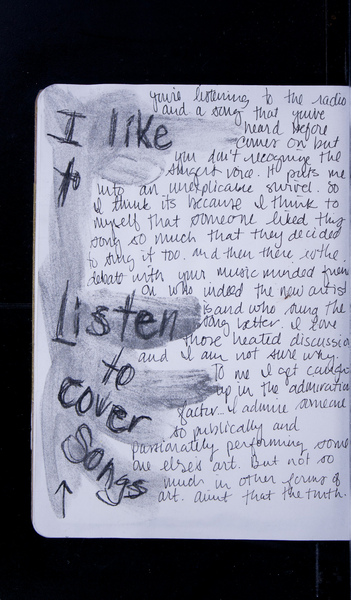 I like
to
Listen
to
cover
Songs
you're listening to the radio
and a song that you've
heard before
comes on but
you don't recognize the
singers voice. It puts me
into an unexplicable swivel. So
I think its because I think to
myself that someone liked this
song so much that they decided
to sing it too. and then there is the
debate with your music minded
on who indeed the new artist
is and who sung the
song better. I love
those heated discussio
and I am not sure why.
To me I get caught
up in the admiration
factor. I admire someone
so publically and
passionately performing some
one else's art. But not so
much in other forms of
art. aint that the truth.